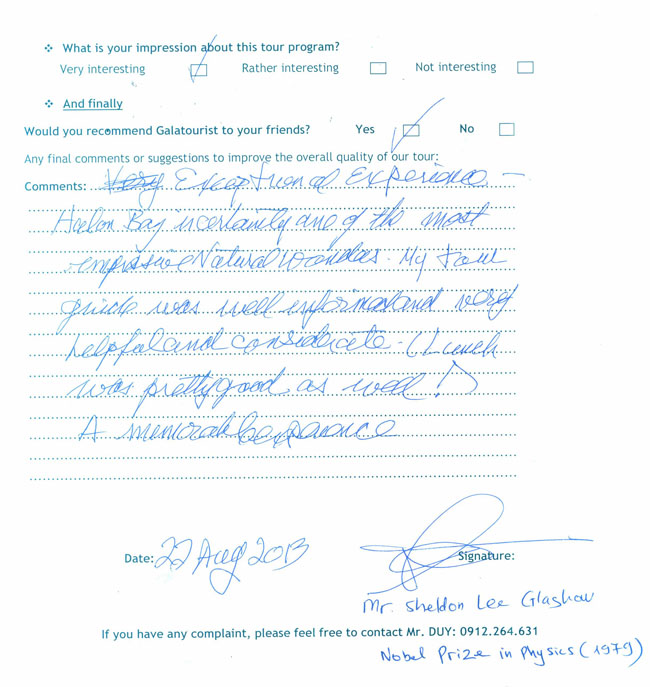 ❖ What is your impression about this tour program?
Very interesting Rather interesting Not interesting
❖ And finally
Would you recommend Galatourist to your friends? Yes No
Any final comments or suggestions to improve the overall quality of our tour:
Comments: Very Exceptional Experience –
Halon Bay is certainly one of the most
impressive Natural Wonders. My tour
guide was well informed and very
helpful and considerate. (Lunch
was pretty good as well!)
A memorable experience
Date: 22 Aug 2013 Signature:
Mr. Sheldon Lee Glashow
If you have any complaint, please feel free to contact Mr. DUY: 0912.264.631
Nobel Prize in Physics (1979)